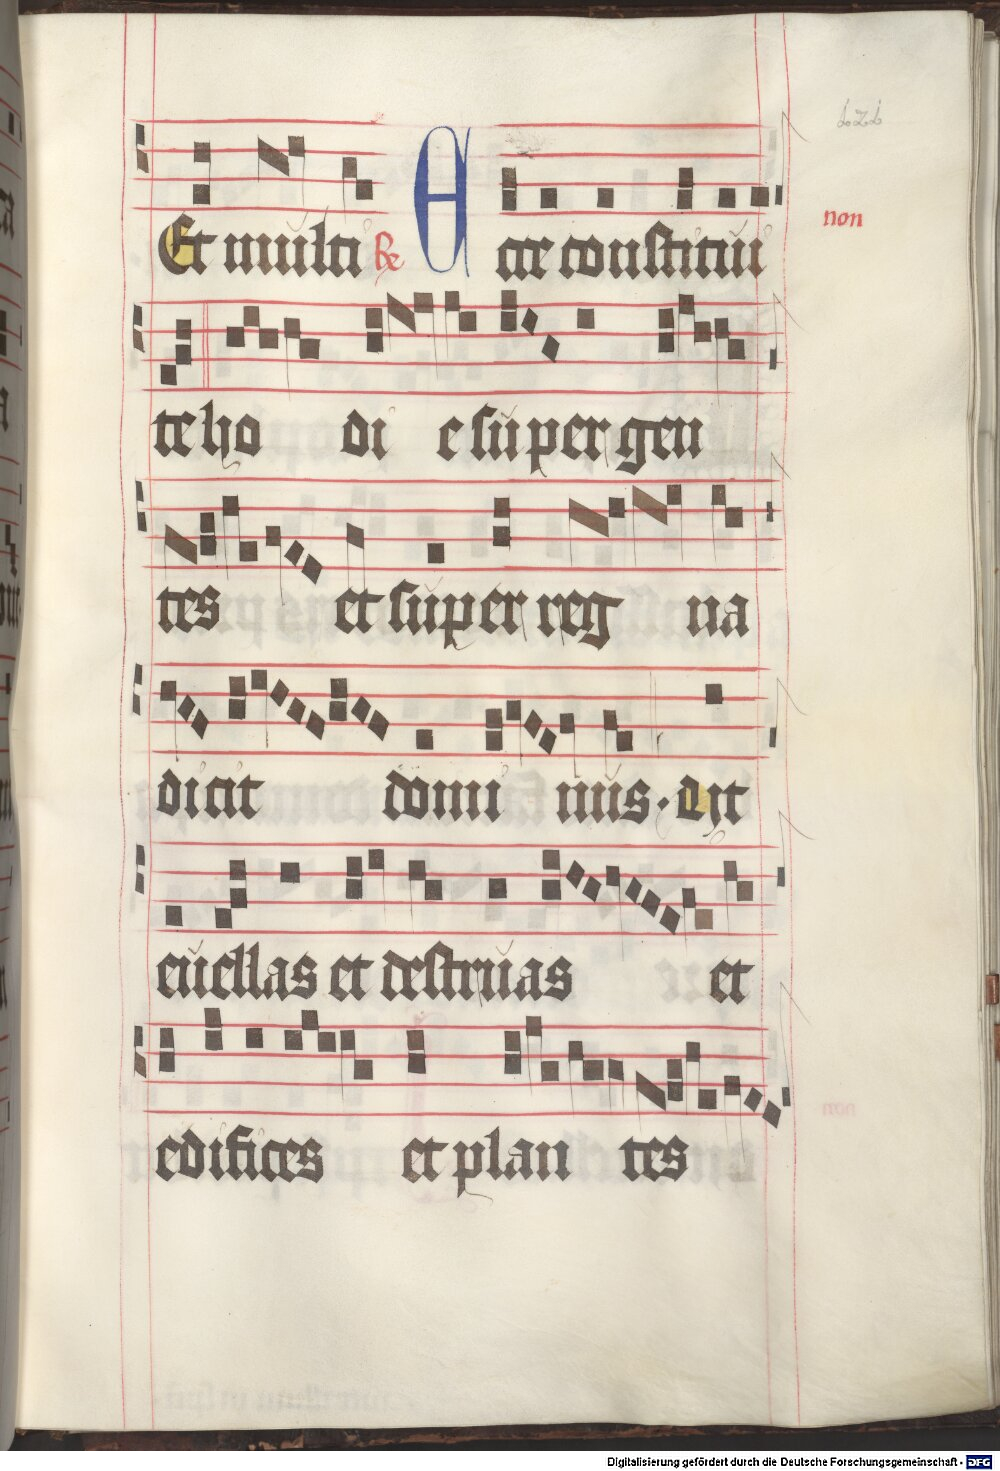 non
Et multi R Ecce constitui
te ho di e super gen
tes et super reg na
dicit domi nus. Vt
euellas et destruas et
edifices et plan tes
Digitalisierung gefördert durch die Deutsche Forschungsgemeinschaft - DFG